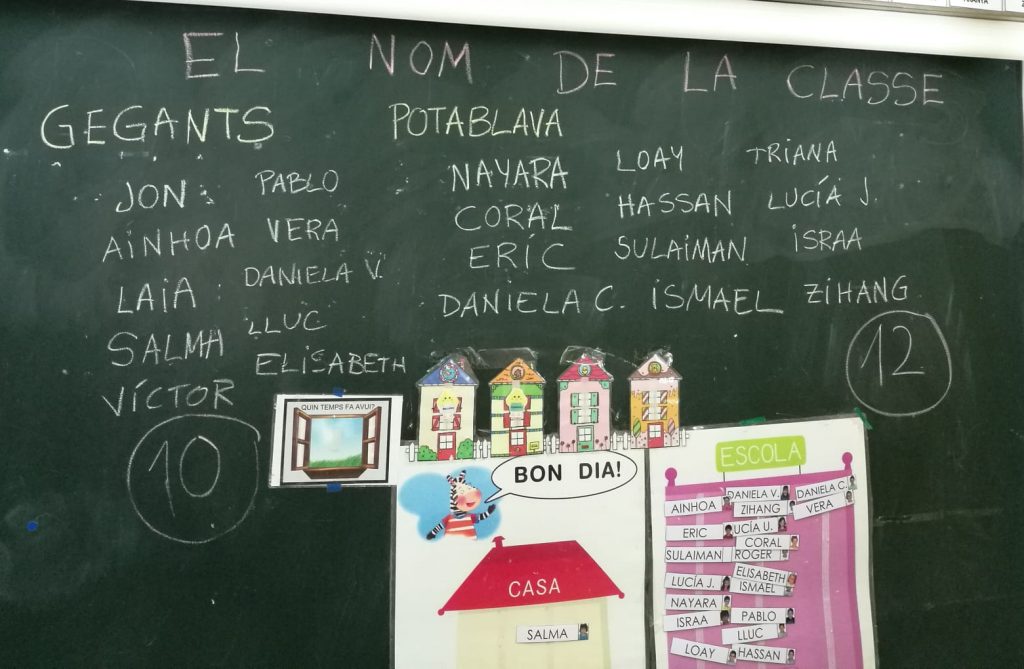 EL NOM DE LA CLASSE
GEGANTS
JON PABLO
AINHOA VERA
LAIA DANIELA V.
SALMA LLUC
VÍCTOR ELISABETH
10
POTABLAVA
NAYARA LOAY TRIANA
CORAL HASSAN LUCÍA J.
ERIC SULAIMAN ISRAA
DANIELA C. ISMAEL ZIHANG
12
QUIN TEMPS FA AVUI?
BON DIA!
CASA
SALMA
ESCOLA
DANIELA V. DANIELA C.
AINHOA ZIHANG VERA
ERIC LUCÍA U.
CORAL
SULAIMAN ROGER
ELISABETH
LUCÍA J. ISMAEL
NAYARA
ISRAA PABLO
LLUC
LOAY HASSAN